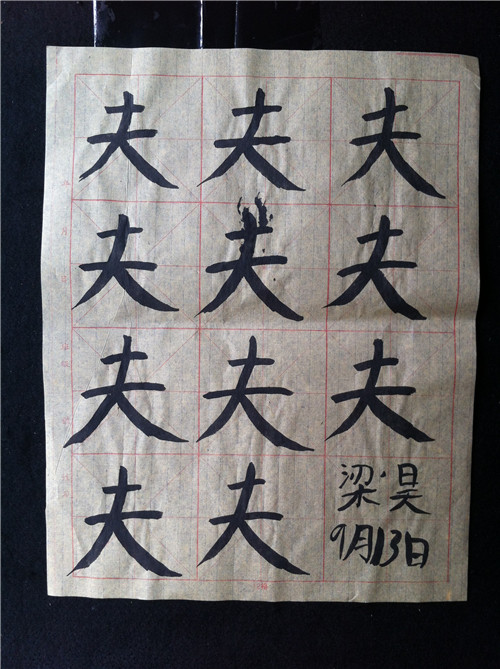 夫夫夫
夫夫夫
夫夫夫
夫夫梁昊
9月13日